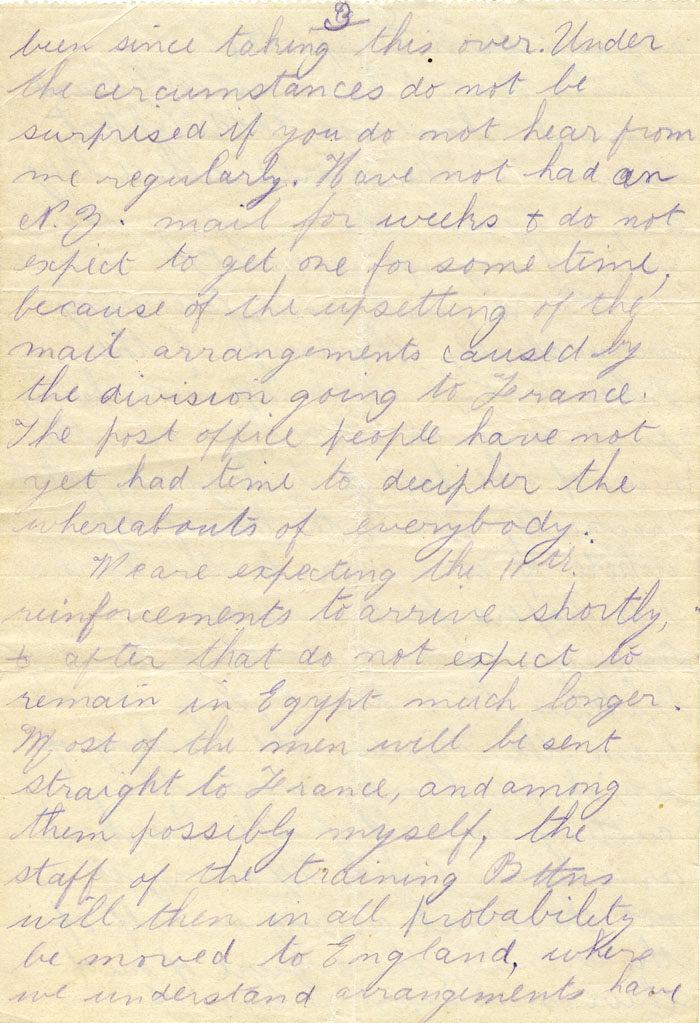 3
been since taking this over. Under
the circumstances do not be
surprised if you do not hear from
me regularly. Have not had an
N.Z. mail for weeks & do not
expect to get one for some time,
because of the upsetting of the
mail arrangements caused by
the division going to France.
The post office people have not
yet had time to decipher the
whereabouts of everybody.
We are expecting the 11th
reinforcements to arrive shortly,
& after that do not expect to
remain in Egypt much longer.
Most of the men will be sent
straight to France, and among
them possibly myself, the
staff of the training Bttns
will then in all probability
be moved to England, where
we understand arrangements have